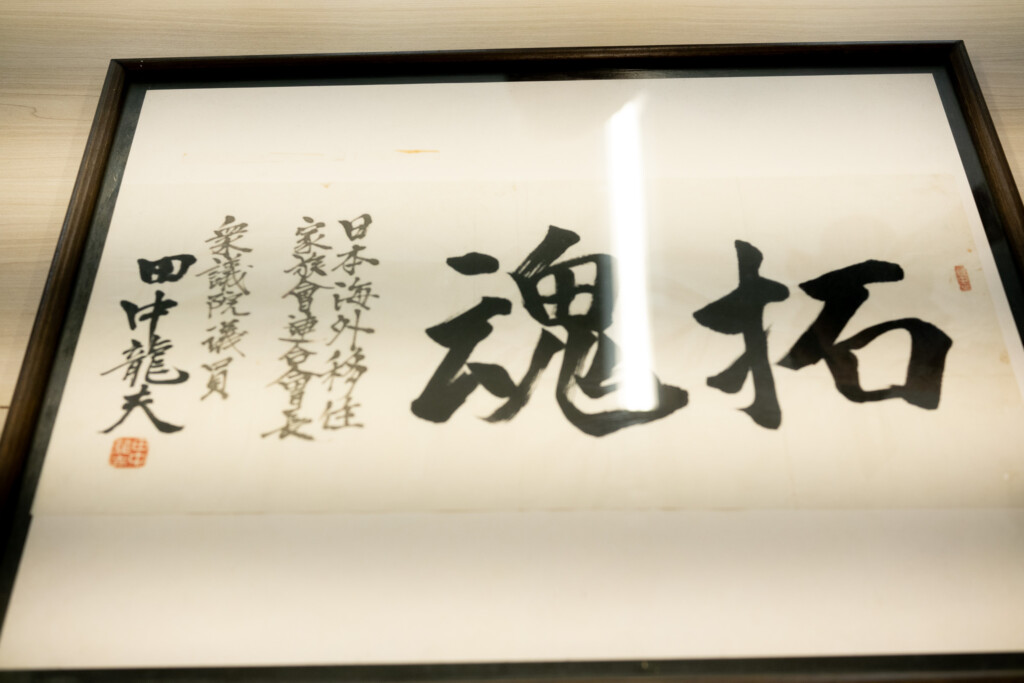 拓魂
日本海外移住
家族會連合會會長
衆議院議員
田中龍夫